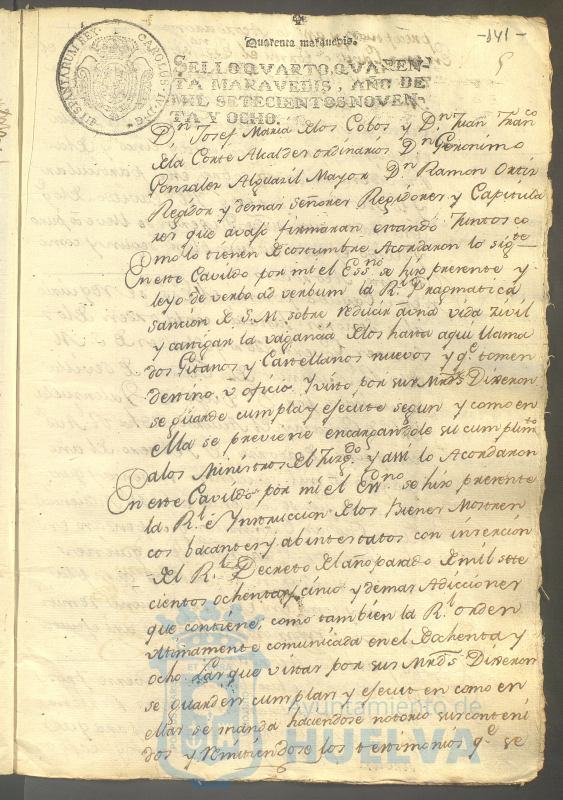 -141-
5
Quarenta maravedis.
SELLO QVARTO, QVAREN-
TA MARAVEDIS, AÑO DE
MIL SETECIENTOS NOVEN-
TA Y OCHO.
HISPANIARUM REX CAROLUS IV D G
Dn Josef Maria delos Cobos y Dn Juan Franco
dela Corte Alcaldes ordinarios Dn Geronimo
Gonzales Alguazil Mayor Dn Ramon Ortiz
Regidor y demas Señores Regidores y Capitula
res que avajo firmaran estando Juntos co
mo lo tienen de costumbre Acordaron lo sigte
En este Cavildo por mi el Essno se hizo presente y
leyo de verbo ad verbum la Rl Pragmatica
sancion de S.M. sobre reducir a una vida zivil
y castigar la vagancia delos hasta aqui llama
dos Gitanos y Castellanos nuevos y qe tomen
destino, u oficio Y visto por sus Mrds Dixeron
se guarde cumpla y efecute segun y como en
ella se previene encargandole su cumplimto
alos Ministros del Juzgdo y assi lo Acordaron
En este Cavildo por mi el Essno se hizo presente
la Rl Ynstruccion delos bienes Mostren
cos bacantes y abintestatos con insercion
del Rl Decreto del año pasado de mil sete
cientos ochenta y cinco y demas Adicciones
que contiene, como tambien la Rl orden
ultimamente comunicada en el de ochenta y
ocho Las que vistas por sus Mrds Dixeron
se guarden cumplan y efecuten como en
ellas se manda haciendose notorio sus conteni
dos y remitiendose los testimonios qe se
Ayuntamiento de
HUELVA